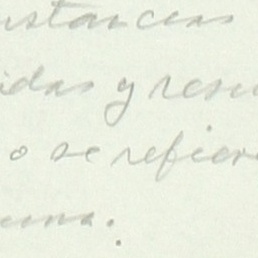 ustancias
idas y resu
o se refier
una.